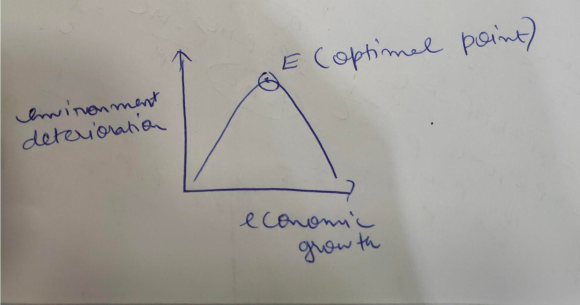 E (optimal point)
environment
deterioration
economic
growth